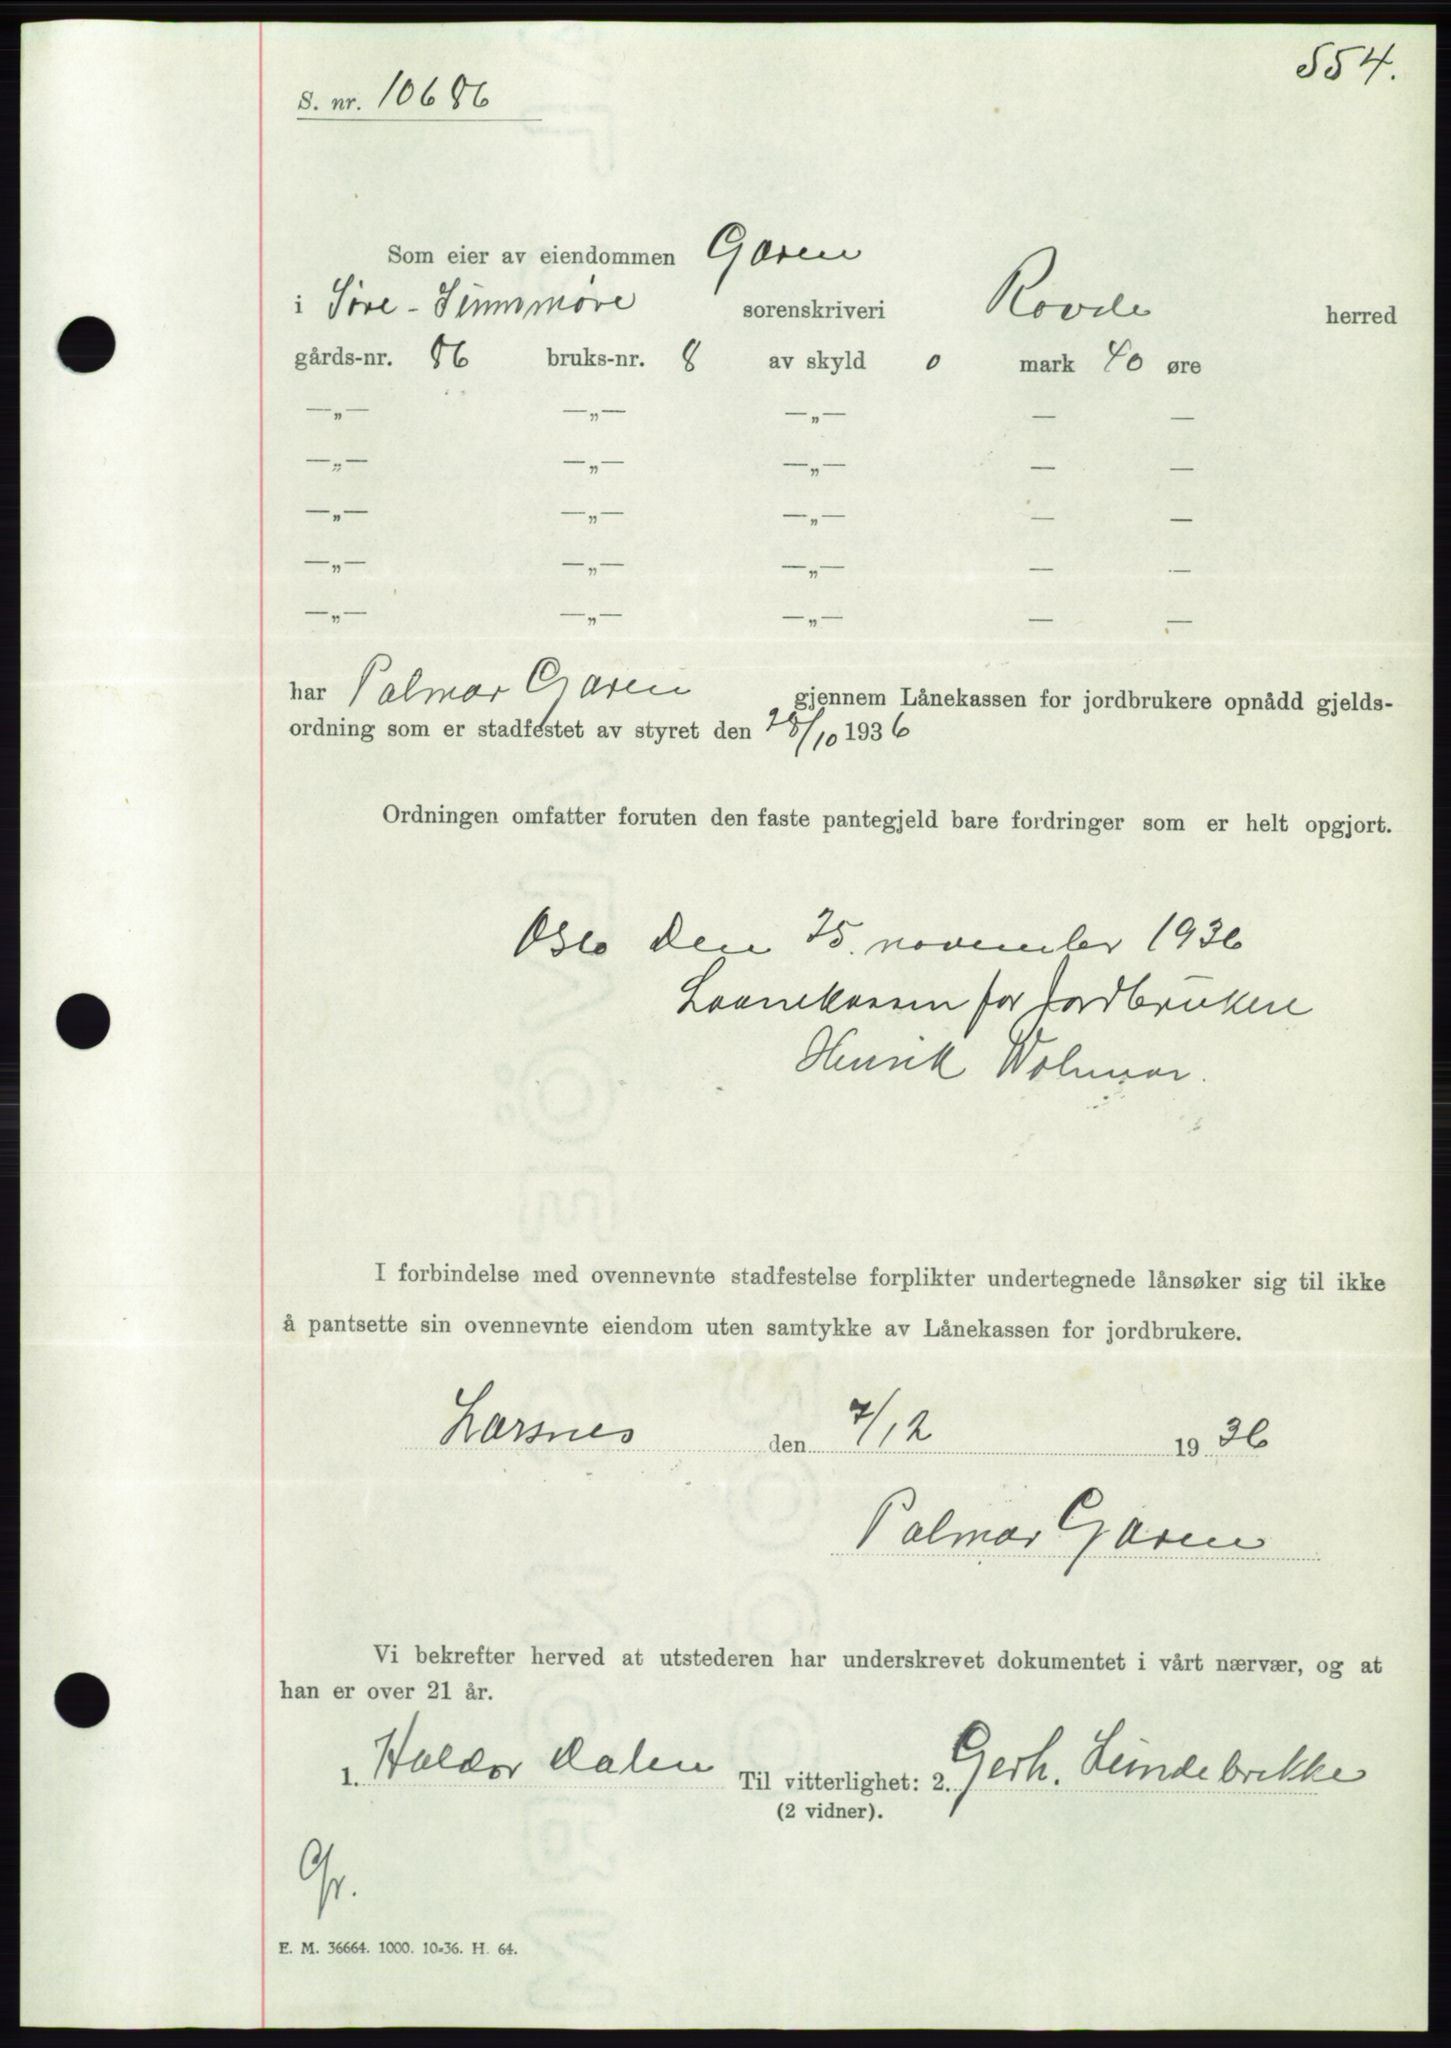 554.
S. nr. 10686
Som eier av eiendommen Garen
i Søre - Sunnmøre sorenskriveri Rovde herred
gårds-nr. 86 bruks-nr. 8 av skyld 0 mark 40 øre
—„— —„— —„— — —
—„— —„— —„— — —
—„— —„— —„— — —
—„— —„— —„— — —
—„— —„— —„— — —
har Palmar Garen gjennem Lånekassen for jordbrukere opnådd gjelds-
ordning som er stadfestet av styret den 28/10 1936
Ordningen omfatter foruten den faste pantegjeld bare fordringer som er helt opgjort.
Oslo den 25. november 1936
Laanekassen for Jordbrukere
Henrik Wolmar.
I forbindelse med ovennevnte stadfestelse forplikter undertegnede lånsøker sig til ikke
å pantsette sin ovennevnte eiendom uten samtykke av Lånekassen for jordbrukere.
Larsnes den 7/12 1936
Palmar Garen
Vi bekrefter herved at utstederen har underskrevet dokumentet i vårt nærvær, og at
han er over 21 år.
1. Haldor Dalen Til vitterlighet: 2. Gerh. Lundebrekke
(2 vidner).
Gr.
E. M. 36664. 1000. 10-36. H. 64.